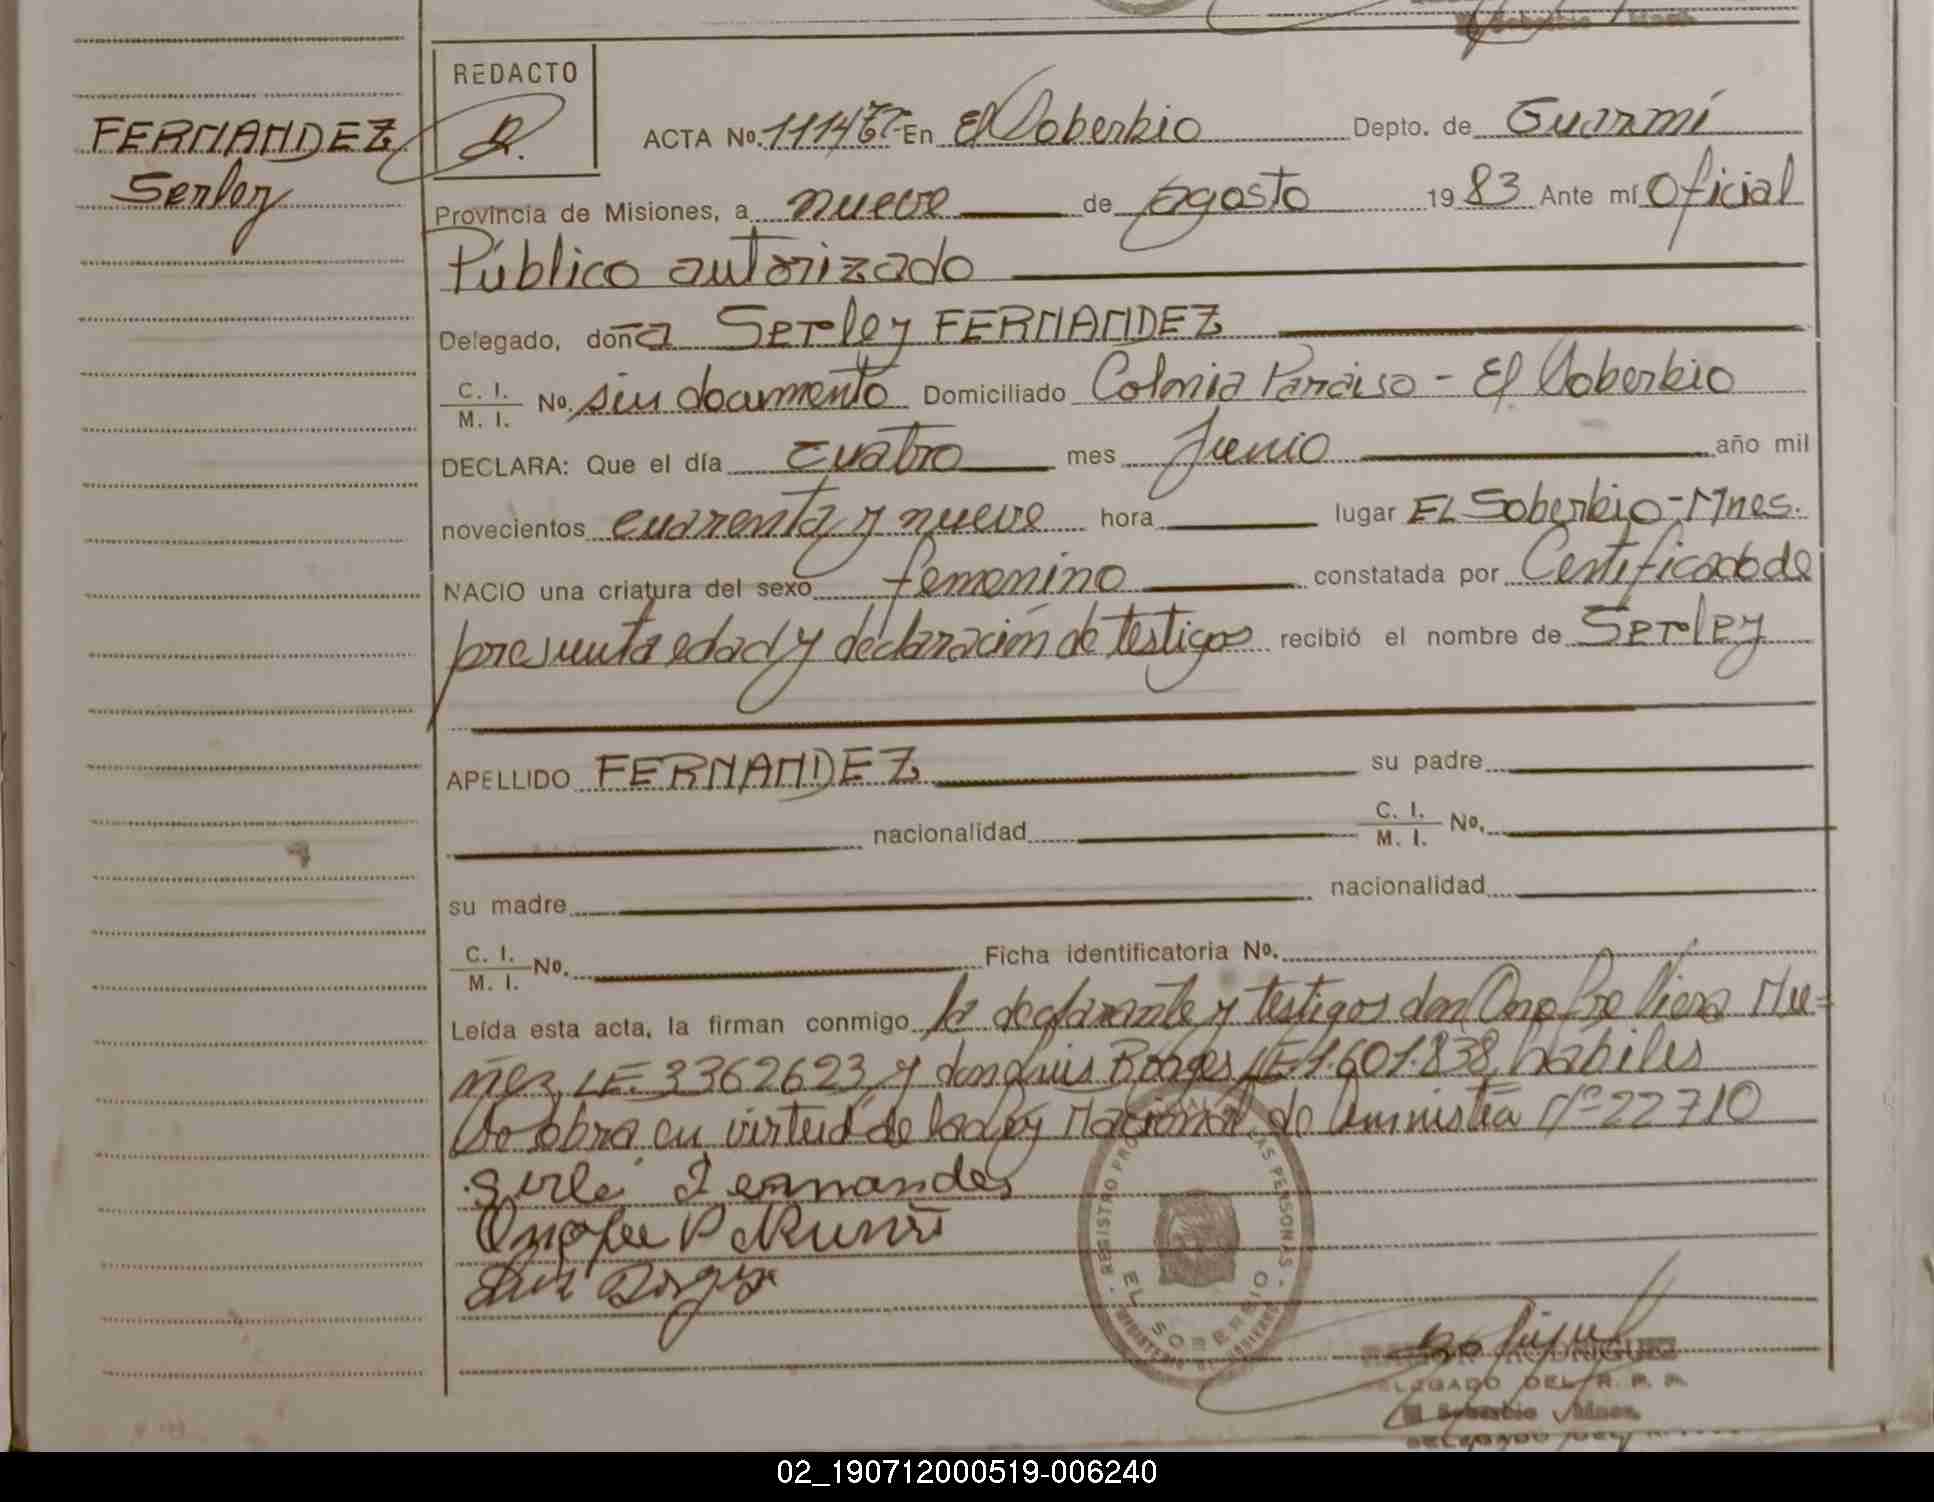 FERNANDEZ
Serley
REDACTO
ACTA No. En El Soberbio Depto. de Guaraní
Provincia de Misiones, a nueve de agosto 1983 Ante mí Oficial
Público autorizado
Delegado, doña Serley FERNANDEZ
C. I.
M. I. No. sin documento Domiciliado Colonia Paraiso - El Soberbio
DECLARA: Que el día cuatro mes Junio año mil
novecientos cuarenta y nueve hora lugar EL Soberbio-Mnes.
NACIO una criatura del sexo femenino constatada por Certificado de
presunta edad y declaración de testigos recibió el nombre de Serley
APELLIDO FERNANDEZ su padre
nacionalidad C. I.
M. I. No.
su madre nacionalidad
C. I.
M. I. No. Ficha identificatoria No.
Leída esta acta, la firman conmigo la declarante y testigos don Onofre Viera Mu=
ñez, LE. 3362623, y don Luis Borges LE 1.601.838, habiles
Se obra en virtud de la Ley Nacional de Amnistía Nº 22710
Sirlé Fernandes
Luis Borges
REGISTRO PERSONAS
EL SOBERBIO
MINISTERIO DE GOBIERNO
RAMON RODRIGUEZ
DELEGADO DEL R. P. P.
El Soberbio Mnes.
02_190712000519-006240